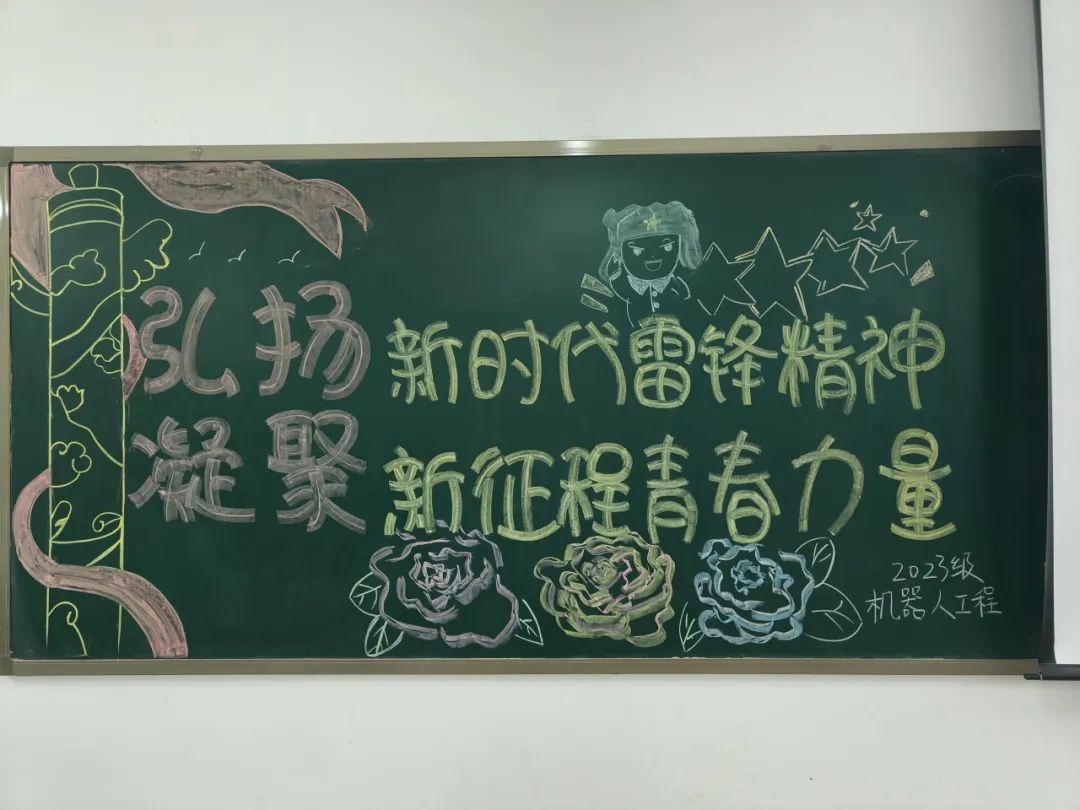 弘扬 新时代雷锋精神
凝聚 新征程青春力量
2023级
机器人工程